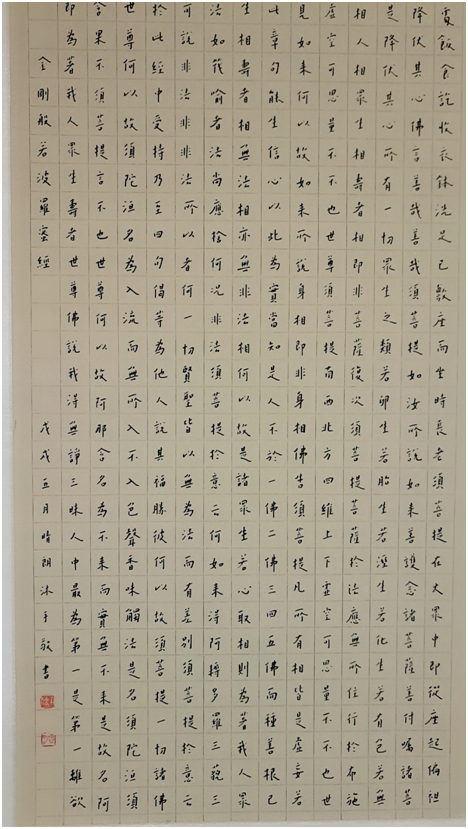 處飯食訖收衣缽洗足已敷座而坐時長老須菩提在大眾中即從座起偏袒
降伏其心佛言善哉善哉須菩提如汝所說如來善護念諸菩薩善付囑諸菩
是降伏其心所有一切眾生之類若卵生若胎生若濕生若化生若有色若無
相人相眾生相壽者相即非菩薩復次須菩提菩薩於法應無所住行於布施
虛空可思量不不也世尊須菩提南西北方四維上下虛空可思量不不也世
見如來何以故如來所說身相即非身相佛告須菩提凡所有相皆是虛妄若
此章句能生信心以此為實當知是人不於一佛二佛三四五佛而種善根已
生相壽者相無法相亦無非法相何以故是諸眾生若心取相則為著我人眾
法如筏喻者法尚應捨何況非法須菩提於意云何如來得阿耨多羅三藐三
可說非法非非法所以者何一切賢聖皆以無為法而有差別須菩提於意云
於此經中受持乃至四句偈等為他人說其福勝彼何以故須菩提一切諸佛
世尊何以故須陀洹名為入流而無所入不入色聲香味觸法是名須陀洹須
含果不須菩提言不也世尊何以故阿那含名為不來而實無不來是故名阿
即為著我人眾生壽者世尊佛說我得無諍三昧人中最為第一是第一離欲
金剛般若波羅蜜經 戊戌五月時朗沐手敬書